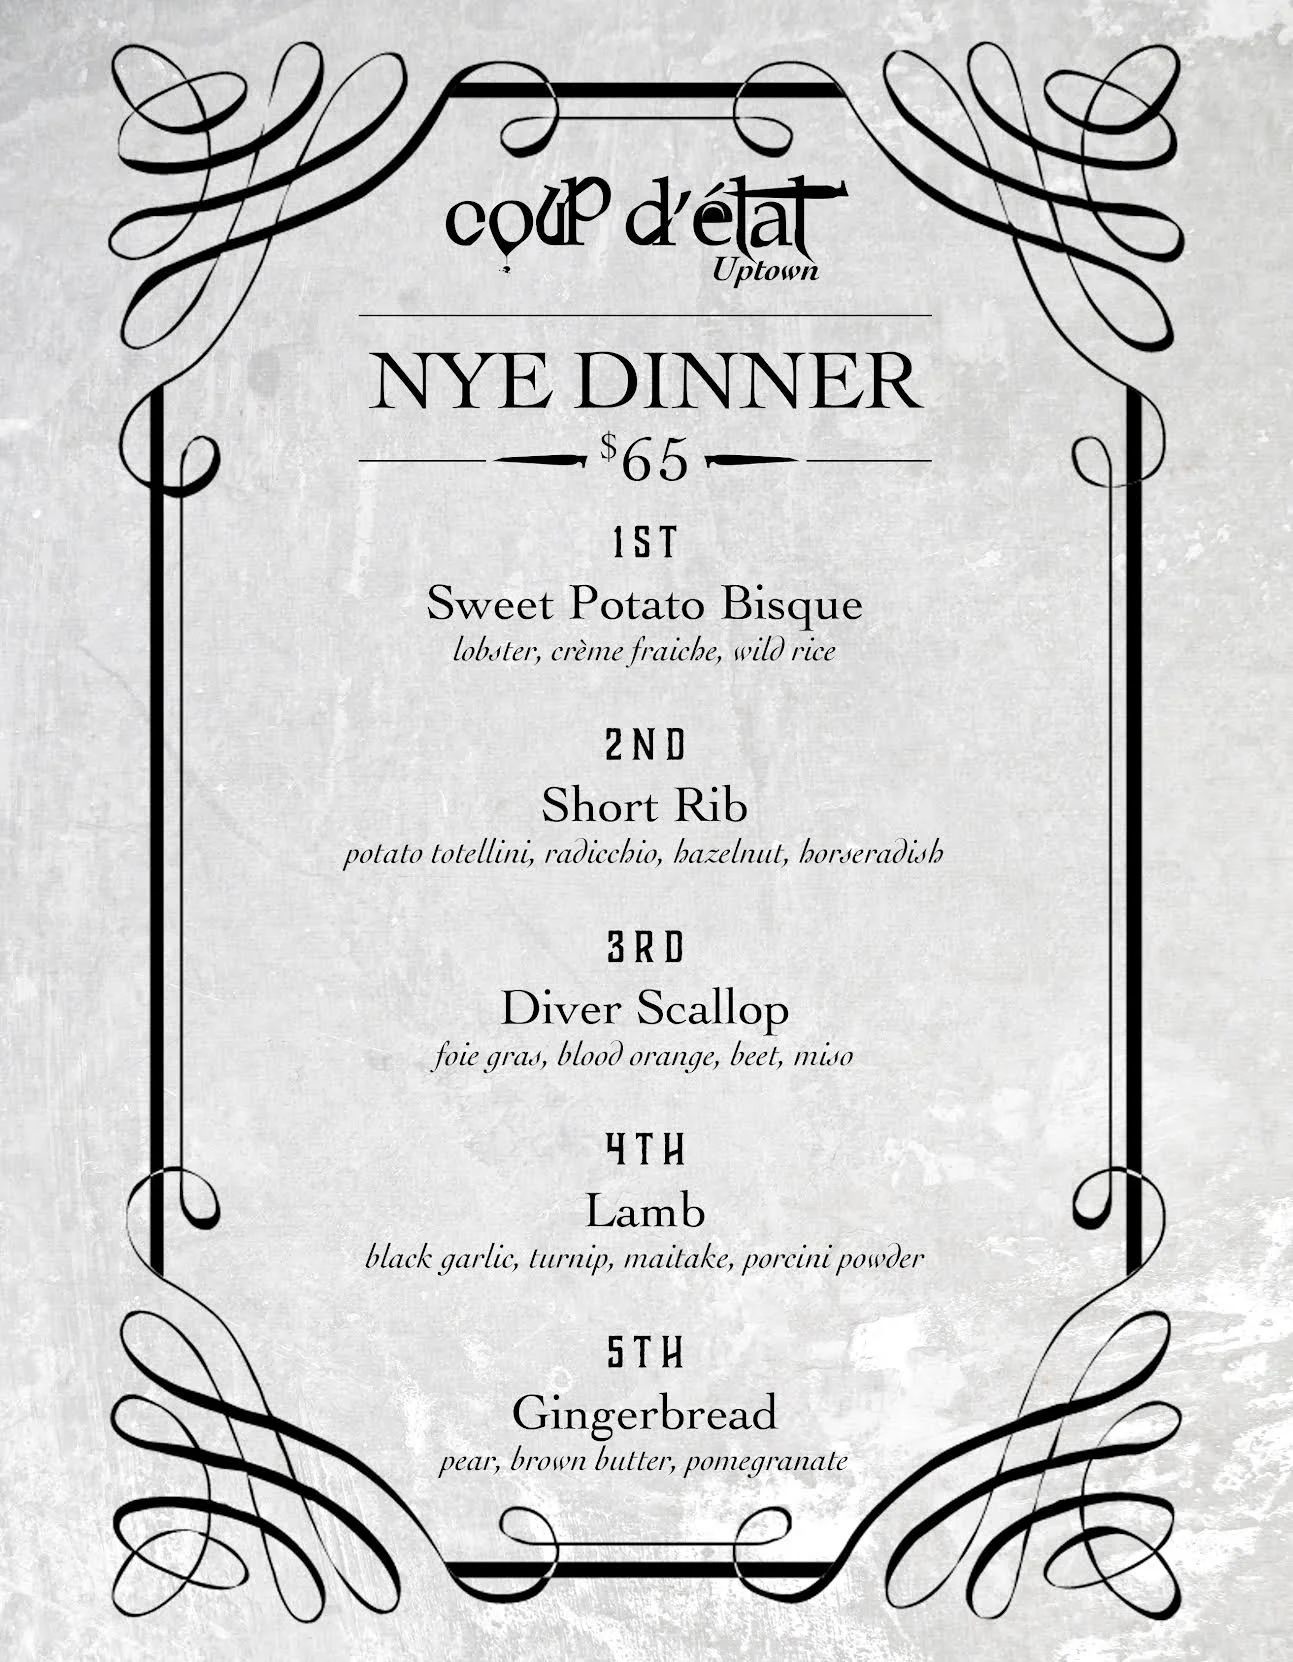 coup d'état
Uptown
NYE DINNER
$65
1ST
Sweet Potato Bisque
lobster, crème fraiche, wild rice
2ND
Short Rib
potato totellini, radicchio, hazelnut, horseradish
3RD
Diver Scallop
foie gras, blood orange, beet, miso
4TH
Lamb
black garlic, turnip, maitake, porcini powder
5TH
Gingerbread
pear, brown butter, pomegranate